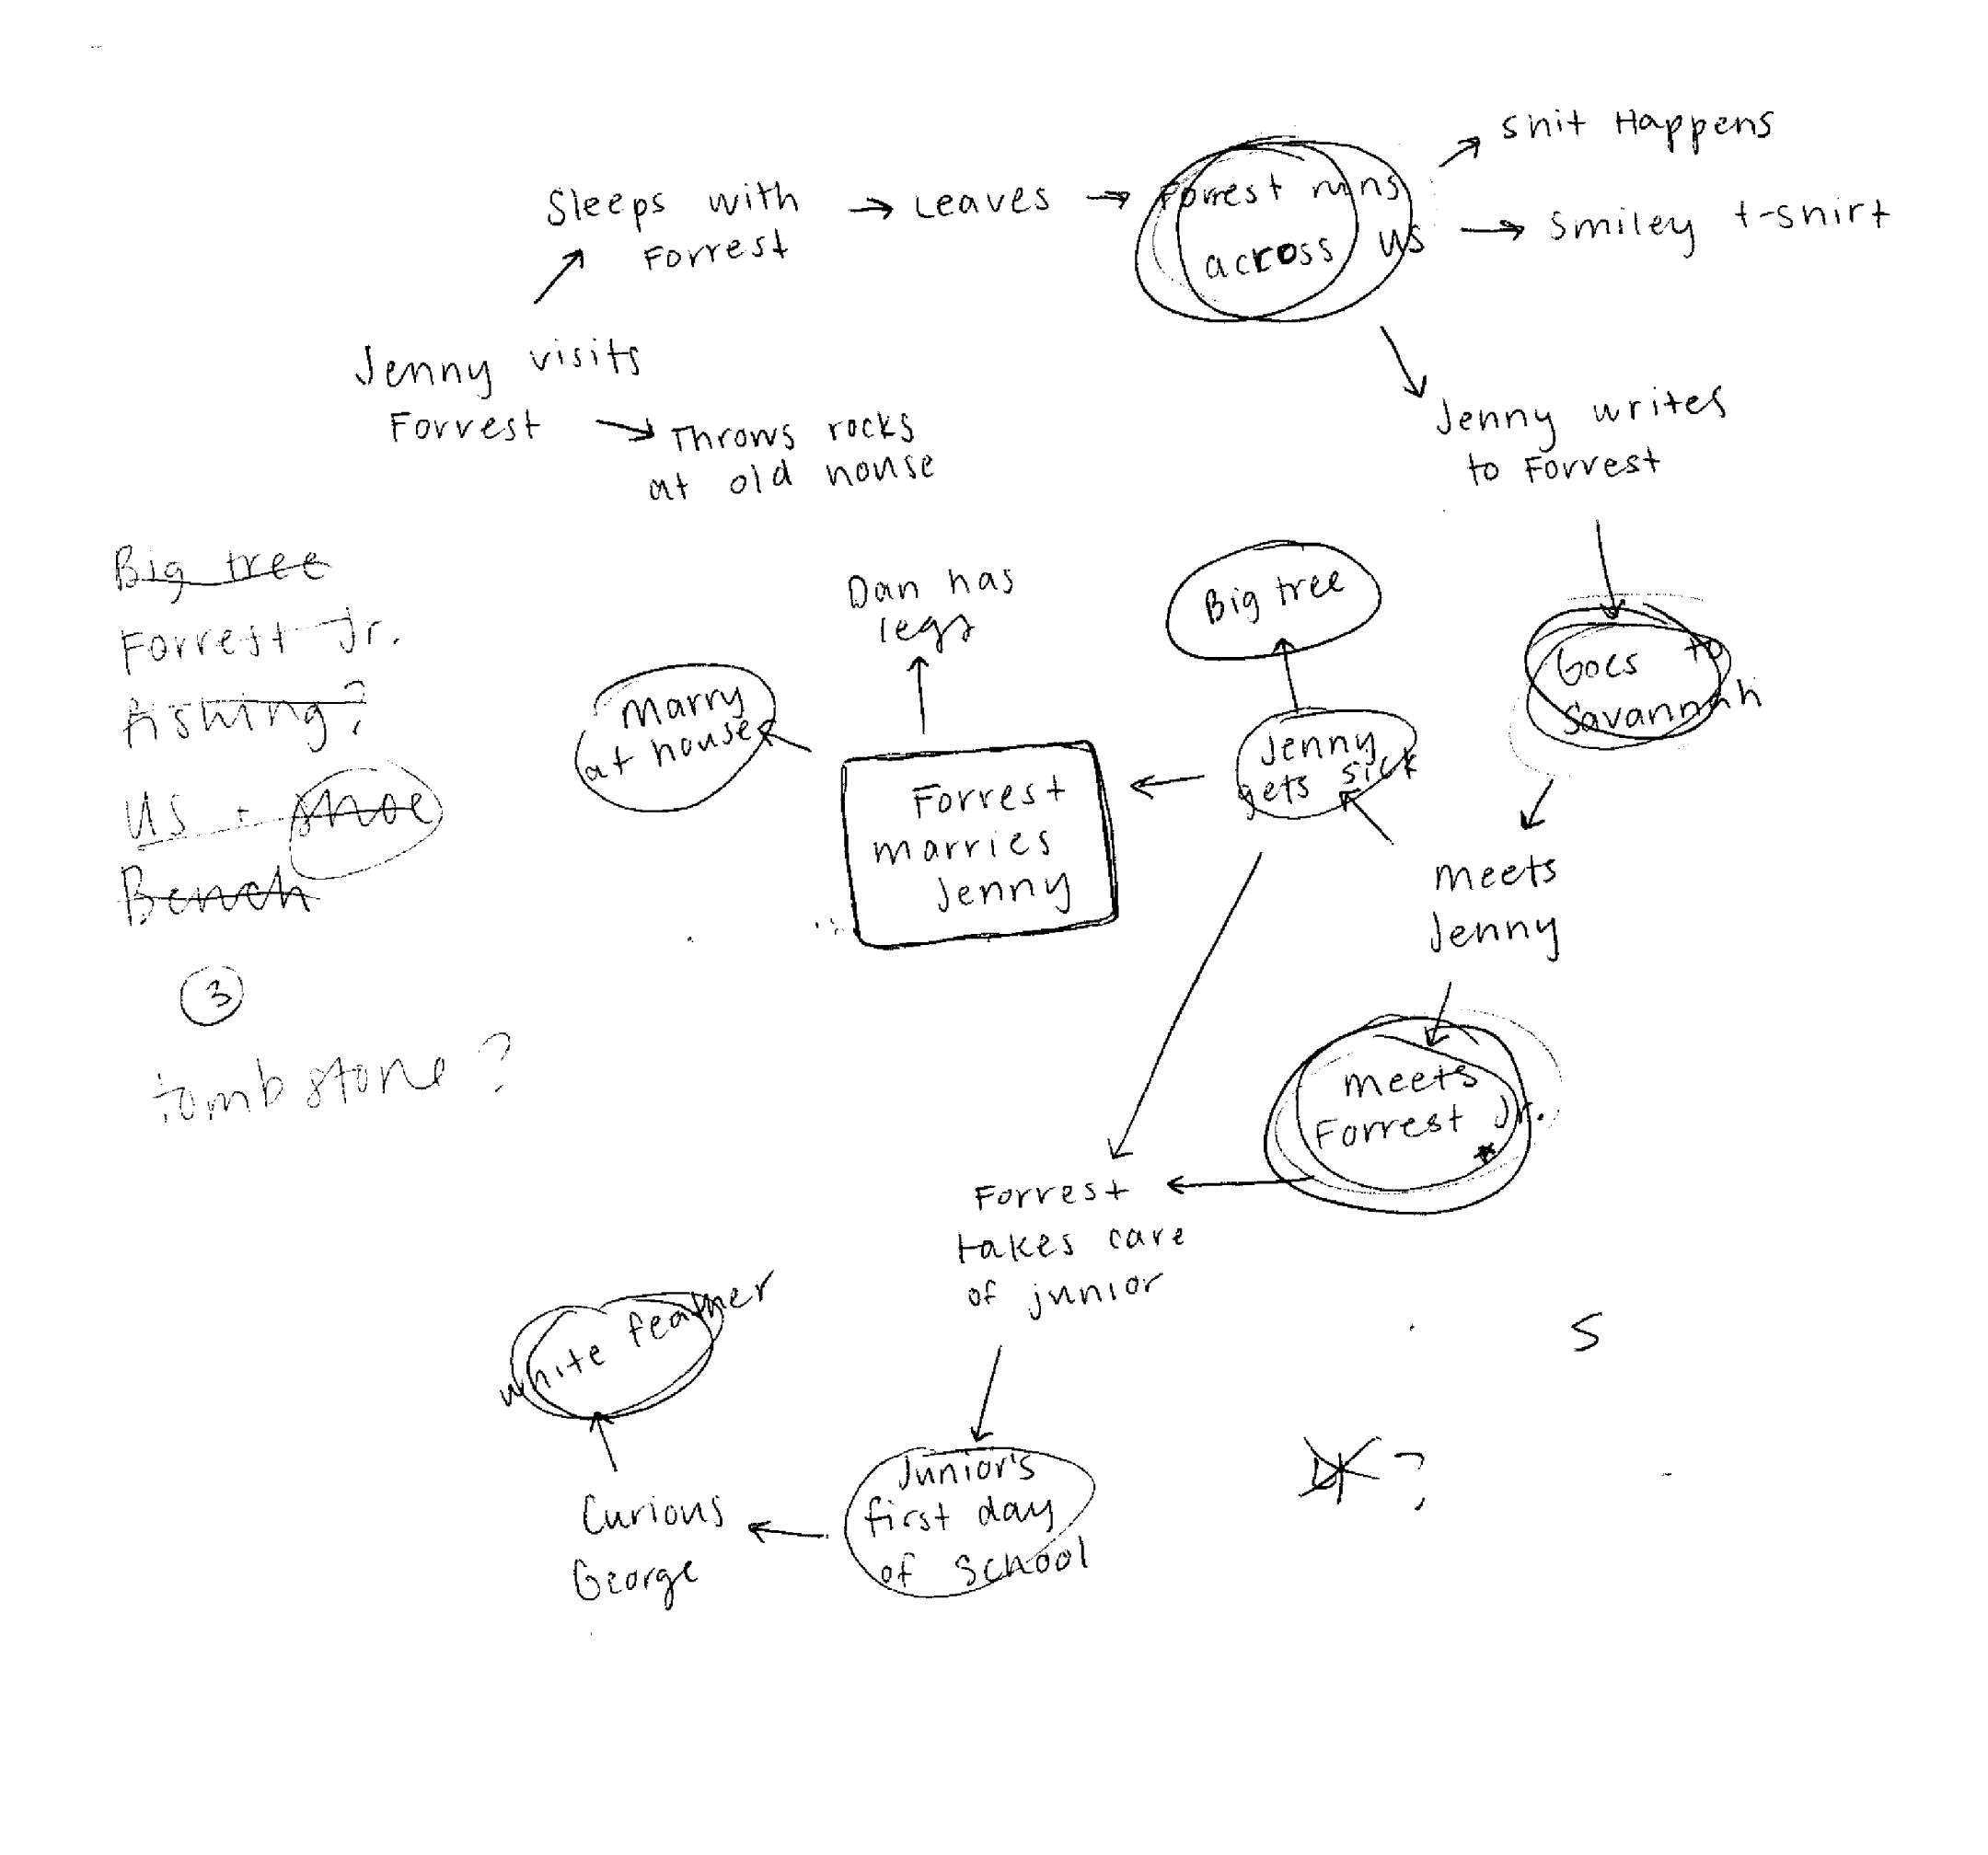 Shit Happens
Sleeps with
Forrest
Leaves
Forrest runs
across US
Smiley t-shirt
Jenny visits
Forrest
Throws rocks
at old house
Jenny writes
to Forrest
Big tree
Forrest Jr.
fishing?
US + shoe
Bench
3
tombstone?
Dan has
legs
Big tree
Marry
at house
Goes to
Savannah
Jenny
gets sick
Forrest
marries
Jenny
meets
Jenny
meets
Forrest Jr.
Forrest
takes care
of junior
white feather
S
Junior's
first day
of school
Curious
George
?